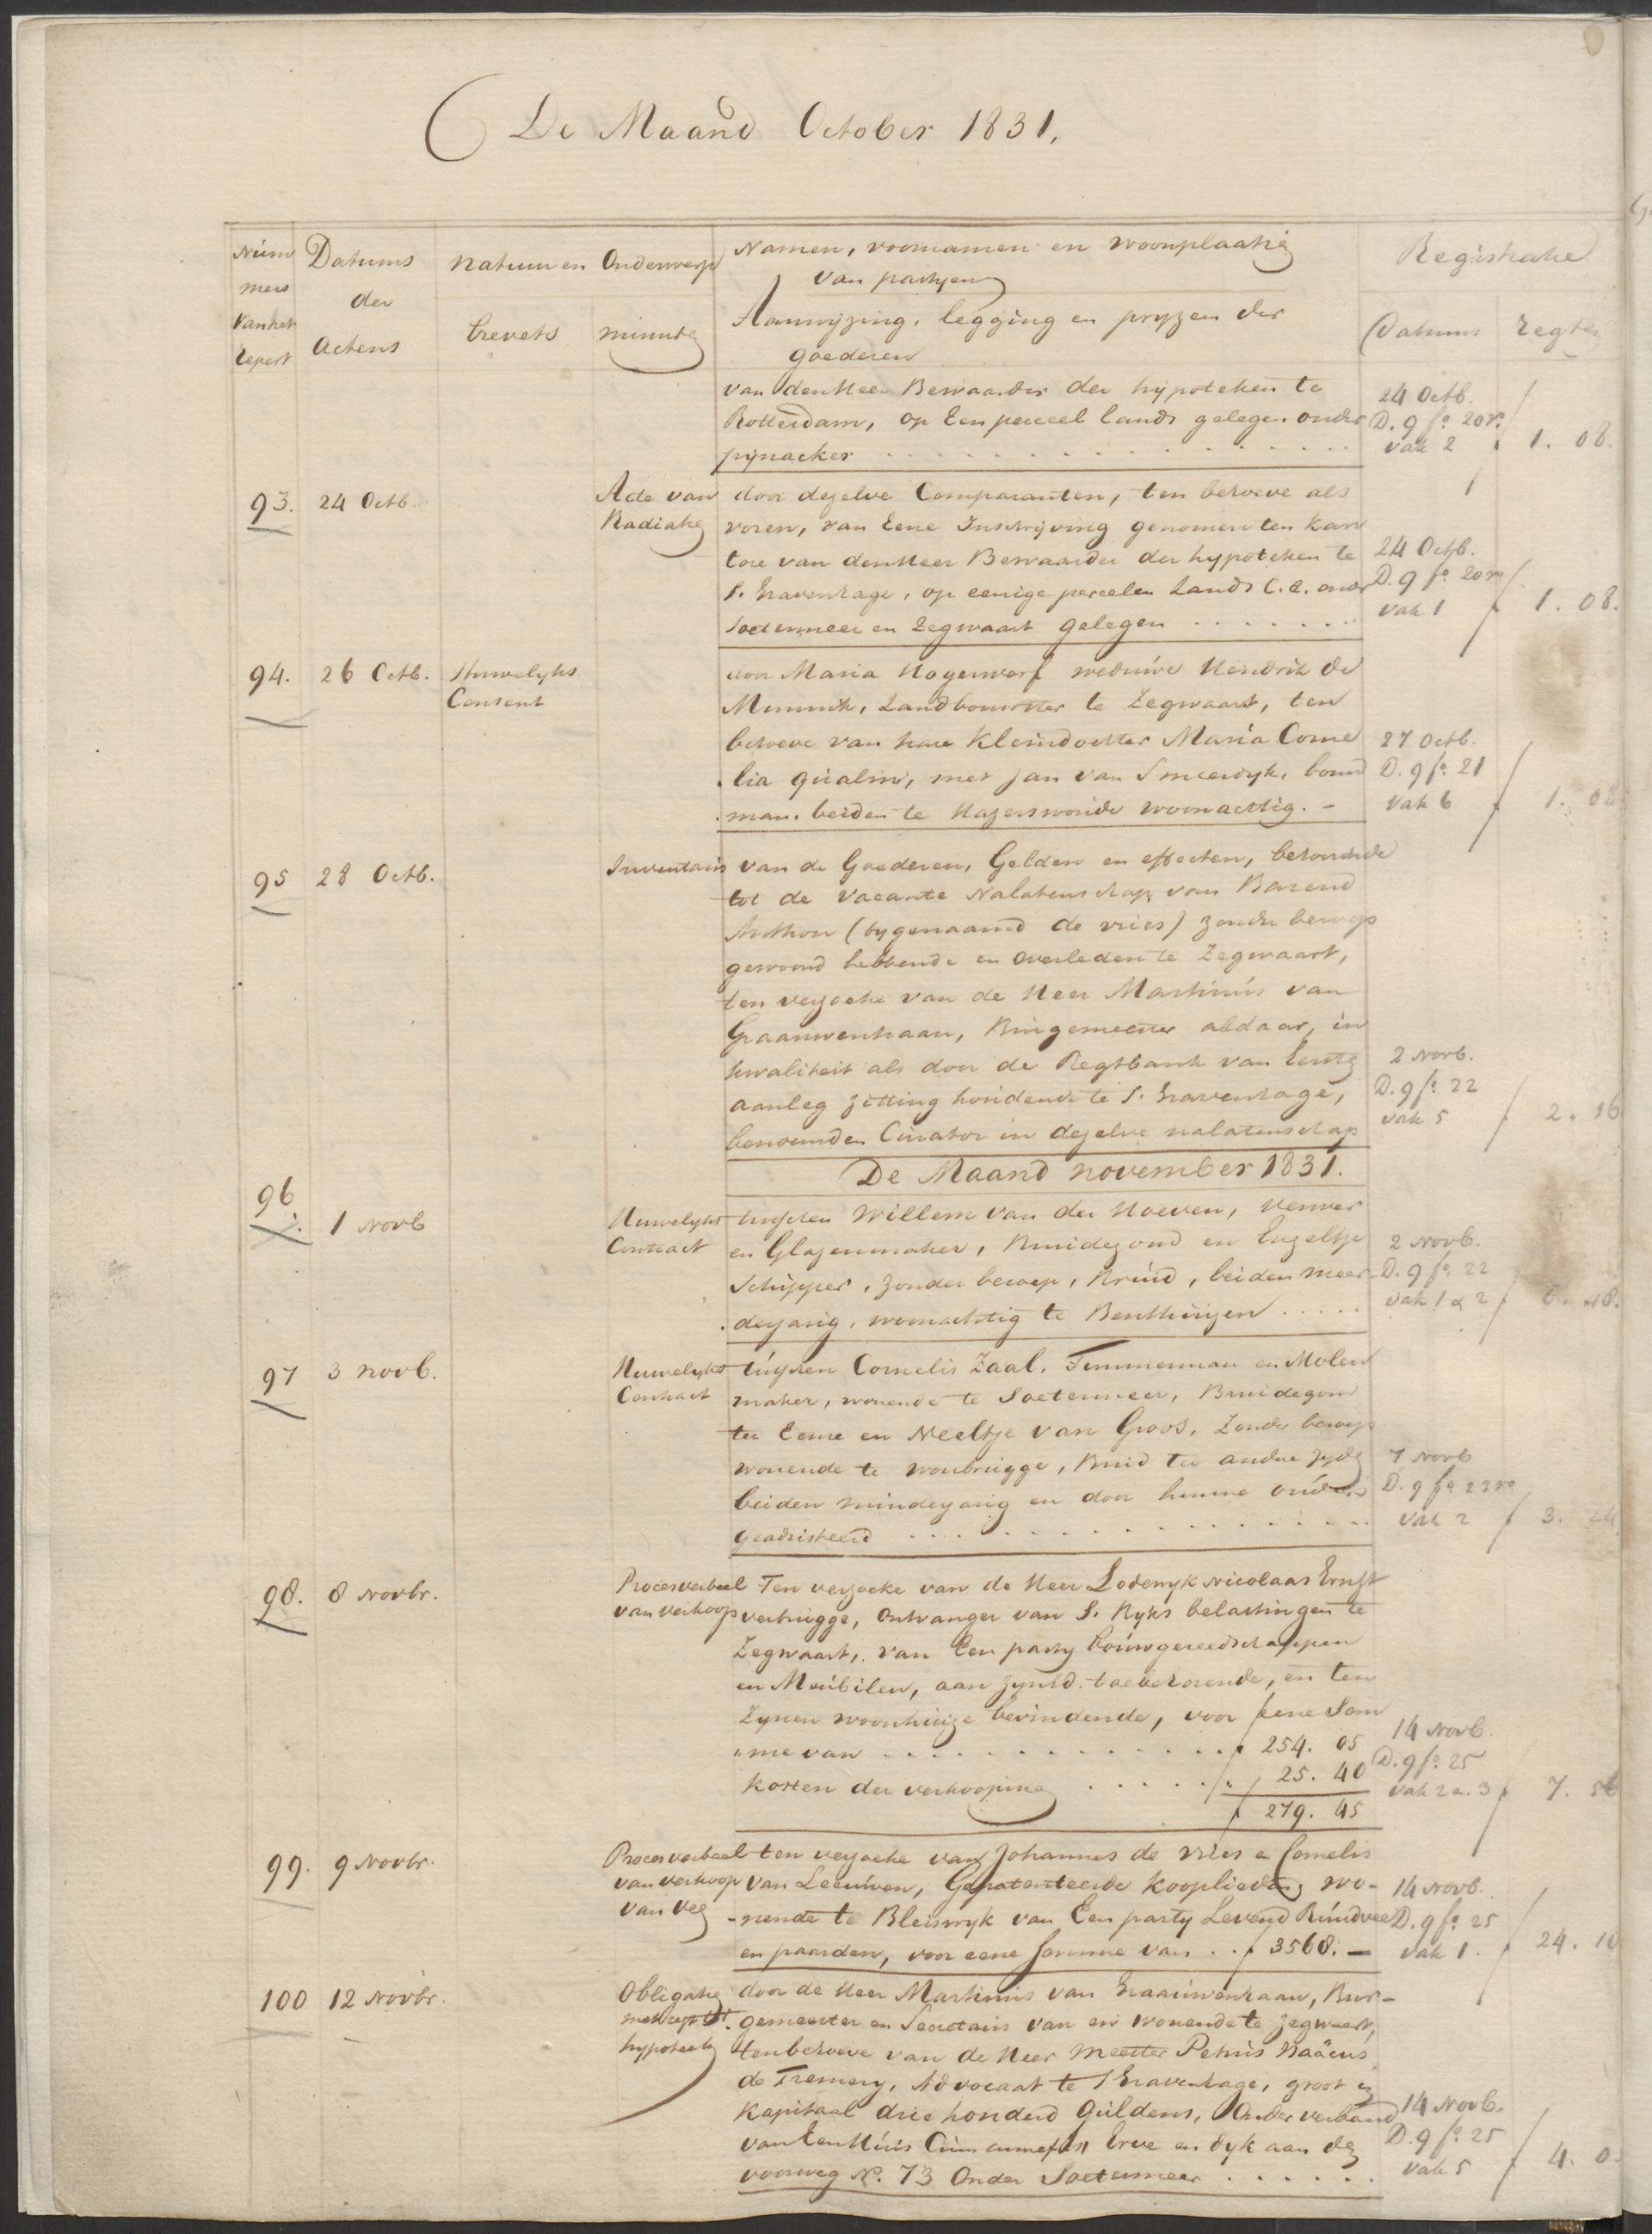 De Maand October 1831.
Num
mers
van het
repert
Datums
der
Actens
natuur en Onderwerp
brevets
minute
Namen, voornamen en woonplaatse
van partyen
Aanwyzing, legging en pryzen der
goederen
Registratie
Datums
regten
van den Heer Bewaarder der hypoteken te
Rotterdam, op Een perceel lands gelegen onder
pynacker
24 Octb.
D. 9 fo. 20 ro
vak 2
1. 08.
93.
24 Octb.
Acte van
Radiatie
door dezelve Comparanten, ten behoeve als
voren, van Eene Inschryving genomen ten kan
tore van den Heer Bewaarder der hypoteken te
S. Gravenhage, op eenige perceelen Lands C.A. onder
Soetermeer en Zegwaart gelegen
24 Octb.
D. 9 fo. 20 ro
vak 1
1. 08.
94.
26 Octb.
Huwelyks
Consent
door Maria Hogerwerf weduwe Hendrik de
Mummik, Landbouwster te Zegwaart, ten
behoeve van hare Kleindochter Maria Corne
lia qualm, met Jan van Smeerdyk, bouw
man. beiden te Hazerswoude woonachtig. -
27 Octb.
D. 9 fo. 21
vak 6
1. 08
95
28 Octb.
Inventaris
van de Goederen, Gelden en effecten, behoorende
tot de vacante Nalatenschap van Barend
Anthon (bygenaamd de vries) zonder beroep
gewoond hebbende en overleden te Zegwaart,
ten verzoeke van de Heer Martinus van
Graauwenhaan, Burgemeester aldaar, in
kwaliteit als door de Regtbank van Eerste
aanleg zitting houdende te S. Gravenhage,
benoemden Curator in dezelve nalatenschap
2 Novb.
D. 9 fo. 22
vak 5
2. 16
De Maand november 1831.
96.
1 Novb
Huwelyks
Contract
tusschen Willem van der Hoeven, Verwer
en Glazenmaker, Bruidegond en Engeltje
Schipper, zonder beroep, Bruid, beiden meer
derjarig, woonachtig te Benthuizen
2 Novb.
D. 9 fo. 22
vak 1 & 2
97
3 novb.
Huwelyks
Contract
tusschen Cornelis Zaal, Timmerman en Molen
maker, wonende te Soetermeer, Bruidegom
ter Eene en Neeltje van Groos, Zonder beroep
wonende te woubrugge, Bruid ter andere zyde
beiden minderjarig en door hunne ouders
geadsisteerd
7 Novb
D. 9 fo 23 ro
vak 2
3.
98.
8 Novbr.
Procesverbaal
van verkoop
Ten verzoeke van de Heer Lodewyk Nicolaas Ernst
verbrugge, Ontvanger van S. Ryks belastingen te
Zegwaart, van Een party bouwgereedschappen
en Meubilen, aan zynEd. toebehoorende, en ten
Zynen woonhuize bevindende, voor Eene Som
me van f 254. 05
kosten der verkooping 25. 40
f 279. 45
14 Novb.
D. 9 fo. 25
vak 2 en 3
7. 56
99.
9 Novbr.
Procesverbaal
van verkoop
van vee
ten verzoeke van Johannes de Vries en Cornelis
van Leeuwen, Gepatenteerde kooplieden, wo-
-nende te Bleiswyk van Een party Levend Rundvee
en paarden, voor eene Somme van . . f 3568. -
14 Novb.
D. 9 fo. 25
vak 1.
24. 10
100
12 Novbr.
Obligatie
hypotheek
door de Heer Martinus van Graauwenhaan, Bur-
gemeester en Secretaris van en wonende te Zegwaart,
ten behoeve van de Heer Meester Petrus Baäeus
de Fremery, Advocaat te S Gravenhage, groot in
kapitaal drie honderd Guldens, Onder verband
van Een Huis Cum annexis Erve en dyk aan de
voorweg No. 73 Onder Soetermeer
14 Novb.
D. 9 fo. 25
vak 5
4. 0